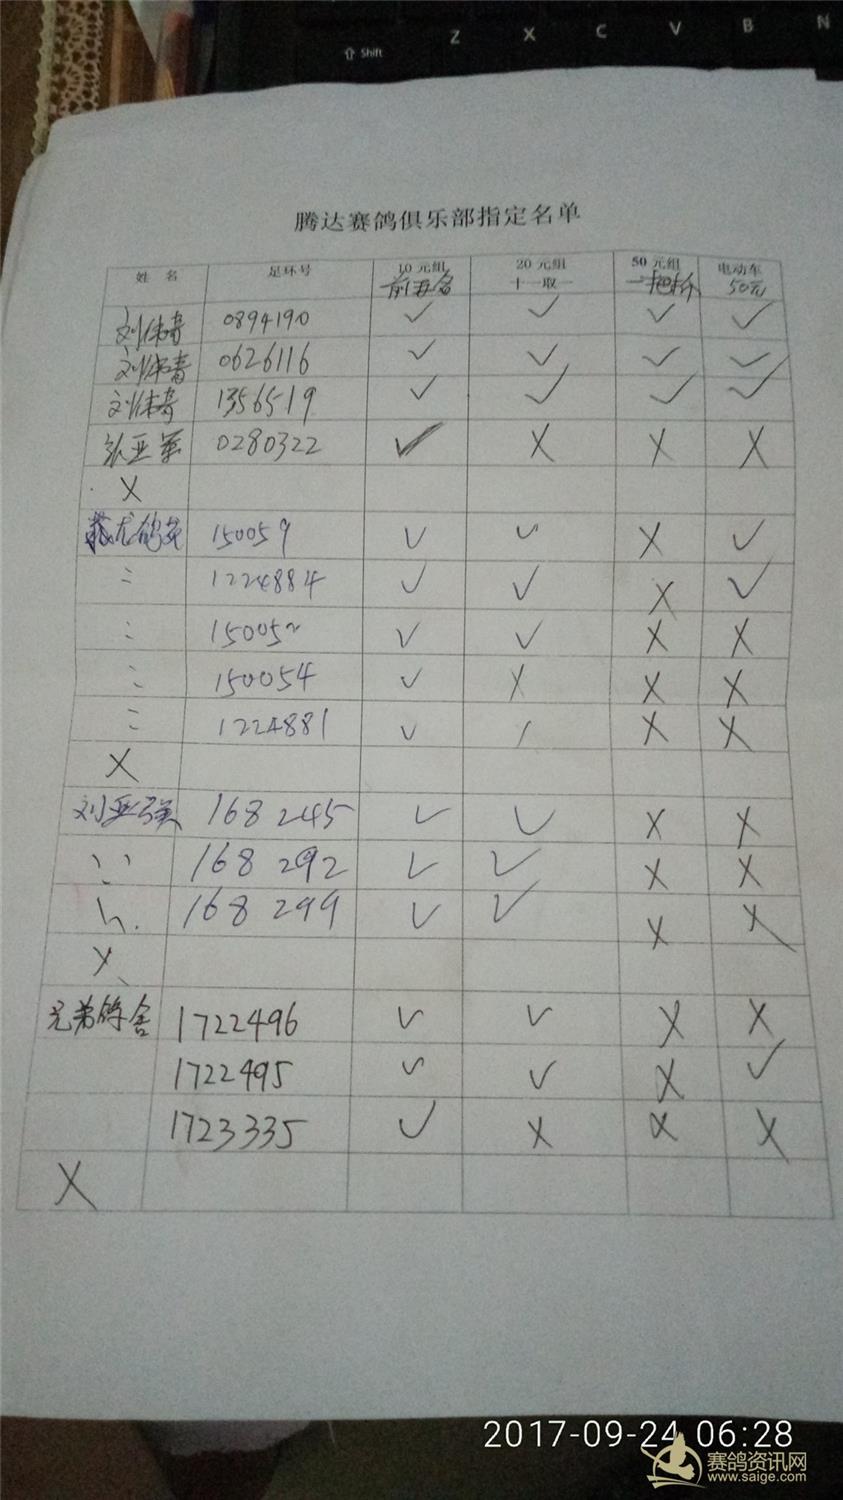 Shift Z X C V B N
腾达赛鸽俱乐部指定名单
姓 名 足环号 10元组 20元组 50元组 电动车
前五名 十一取一 一把抓 50元
刘伟青 0894190 ✓ ✓ ✓ ✓
刘伟青 0626116 ✓ ✓ ✓ ✓
刘伟青 1356519 ✓ ✓ ✓ ✓
张亚军 0280322 ✓ X X X
X
龙鸽苑 150059 ✓ ✓ X ✓
1224884 ✓ ✓ X ✓
150052 ✓ ✓ X X
150054 ✓ X X X
1224881 ✓ X X
X
刘亚强 168245 ✓ ✓ X X
168292 ✓ ✓ X X
168299 ✓ ✓ X X
X
兄弟鸽舍 1722496 ✓ ✓ X X
1722495 ✓ ✓ X ✓
1723335 ✓ X X X
X
2017-09-24 06:28
赛鸽资讯网
www.saige.com